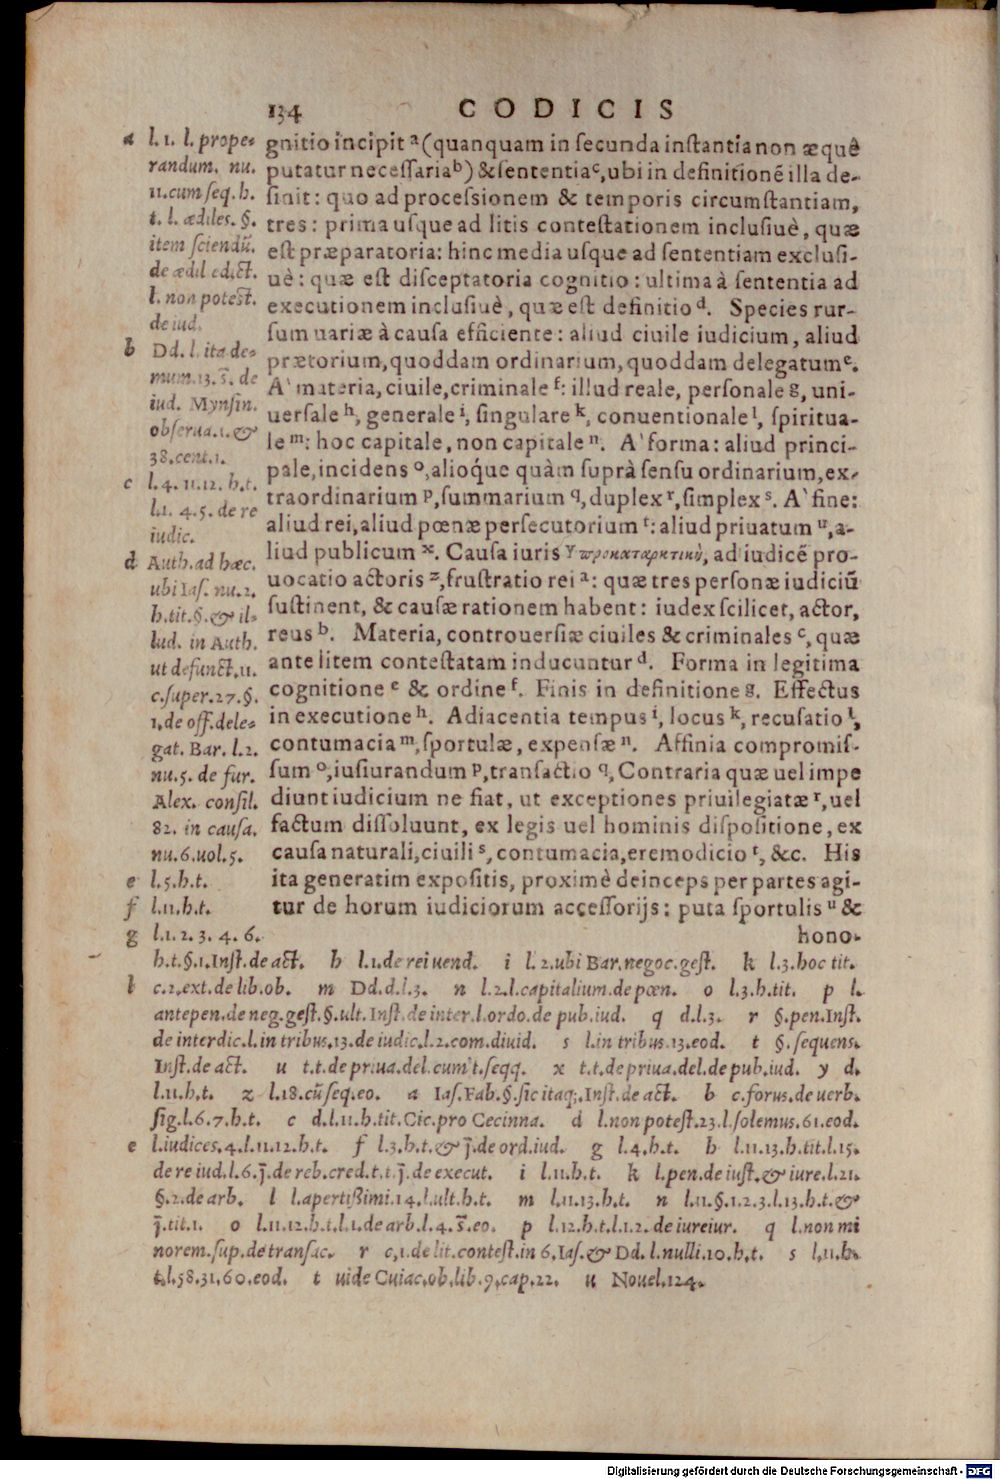 134 CODICIS
gnitio incipit a (quanquam in secunda instantia non æquè
putatur necessaria b) & sententia c, ubi in definitionē illa de-
sinit: quo ad processionem & temporis circumstantiam,
tres: prima usque ad litis contestationem inclusiuè, quæ
est præparatoria: hinc media usque ad sententiam exclusi-
uè: quæ est disceptatoria cognitio: ultima à sententia ad
executionem inclusiuè, quæ est definitio d. Species rur-
sum uariæ à causa efficiente: aliud ciuile iudicium, aliud
prætorium, quoddam ordinarium, quoddam delegatum e.
A' materia, ciuile, criminale f: illud reale, personale g, uni-
uersale h, generale i, singulare k, conuentionale l, spiritua-
le m: hoc capitale, non capitale n. A' forma: aliud princi-
pale, incidens o, alioq́ue quàm suprà sensu ordinarium, ex-
traordinarium p, summarium q, duplex r, simplex s. A' fine:
aliud rei, aliud pœnæ persecutorium t: aliud priuatum u, a-
liud publicum x. Causa iuris y προκαταρκτικὴ, ad iudicē pro-
uocatio actoris z, frustratio rei a: quæ tres personæ iudiciū
sustinent, & causæ rationem habent: iudex scilicet, actor,
reus b. Materia, controuersiæ ciuiles & criminales c, quæ
ante litem contestatam inducuntur d. Forma in legitima
cognitione e & ordine f. Finis in definitione g. Effectus
in executione h. Adiacentia tempus i, locus k, recusatio l,
contumacia m, sportulæ, expensæ n. Affinia compromis-
sum o, iusiurandum p, transactio q, Contraria quæ uel impe
diunt iudicium ne fiat, ut exceptiones priuilegiatæ r, uel
factum dissoluunt, ex legis uel hominis dispositione, ex
causa naturali, ciuili s, contumacia, eremodicio t, &c. His
ita generatim expositis, proximè deinceps per partes agi-
tur de horum iudiciorum accessorijs: puta sportulis u &
hono-
a l.1. l. prope-
randum. nu.
11. cum seq. h.
t. l. ædiles. §.
item sciendū.
de ædil edict.
l. non potest.
de iud.
b Dd. l. ita de-
mum. 13. s̄. de
iud. Mynsin.
obserua. 1. &
38. cent. 1.
c l.4. 11.12. h.t.
l.1. 4.5. de re
iudic.
d Auth. ad hæc.
ubi Ias. nu. 2.
h. tit. §. & il-
lud. in Auth.
ut defunct. 11.
c. super. 27. §.
1, de off. dele-
gat. Bar. l. 2.
nu. 5. de fur.
Alex. consil.
82. in causa.
nu. 6. uol. 5.
e l.5.h.t.
f l.11.h.t.
g l.1. 2. 3. 4. 6.
h.t.§.1. Inst. de act. h l.1. de rei uend. i l.2. ubi Bar. negoc. gest. k l.3. hoc tit.
l c.2. ext. de lib. ob. m Dd. d. l.3. n l.2. l. capitalium. de pœn. o l.3. h. tit. p l.
antepen. de neg. gest. §. ult. Inst. de inter. l. ordo. de pub. iud. q d. l.3. r §. pen. Inst.
de interdic. l. in tribus. 13. de iudic. l.2. com. diuid. s l. in tribus. 13. eod. t §. sequens.
Inst. de act. u t.t. de priua. del. cum t. seqq. x t.t. de priua. del. de pub. iud. y d.
l.11.h.t. z l.18. cū seq. eo. a Ias. Fab. §. sic itaq;. Inst. de act. b c. forus. de uerb.
sig. l.6.7.h.t. c d.l.11.h.tit. Cic. pro Cecinna. d l. non potest. 23. l. solemus. 61. eod.
e l. iudices. 4. l.11.12.h.t. f l.3.h.t. & j̄. de ord. iud. g l.4.h.t. h l.11.13.h.tit. l.15.
de re iud. l.6. j̄. de reb. cred. t.t. j̄. de execut. i l.11.h.t. k l. pen. de iust. & iure. l.21.
§.2. de arb. l l. apertißimi. 14. l. ult. h.t. m l.11.13.h.t. n l.11.§.1.2.3.l.13.h.t. &
j̄. tit. 1. o l.11.12.h.t.l.1. de arb. l.4. s̄. eo. p l.12.h.t.l.1.2. de iureiur. q l. non mi
norem. sup. de transac. r c,1. de lit. contest. in 6. Ias. & Dd. l. nulli. 10. h.t. s l.11.h.
t.l.58.31.60.eod. t uide Cuiac. ob. lib. 9. cap. 22. u Nouel. 124.
Digitalisierung gefördert durch die Deutsche Forschungsgemeinschaft - DFG